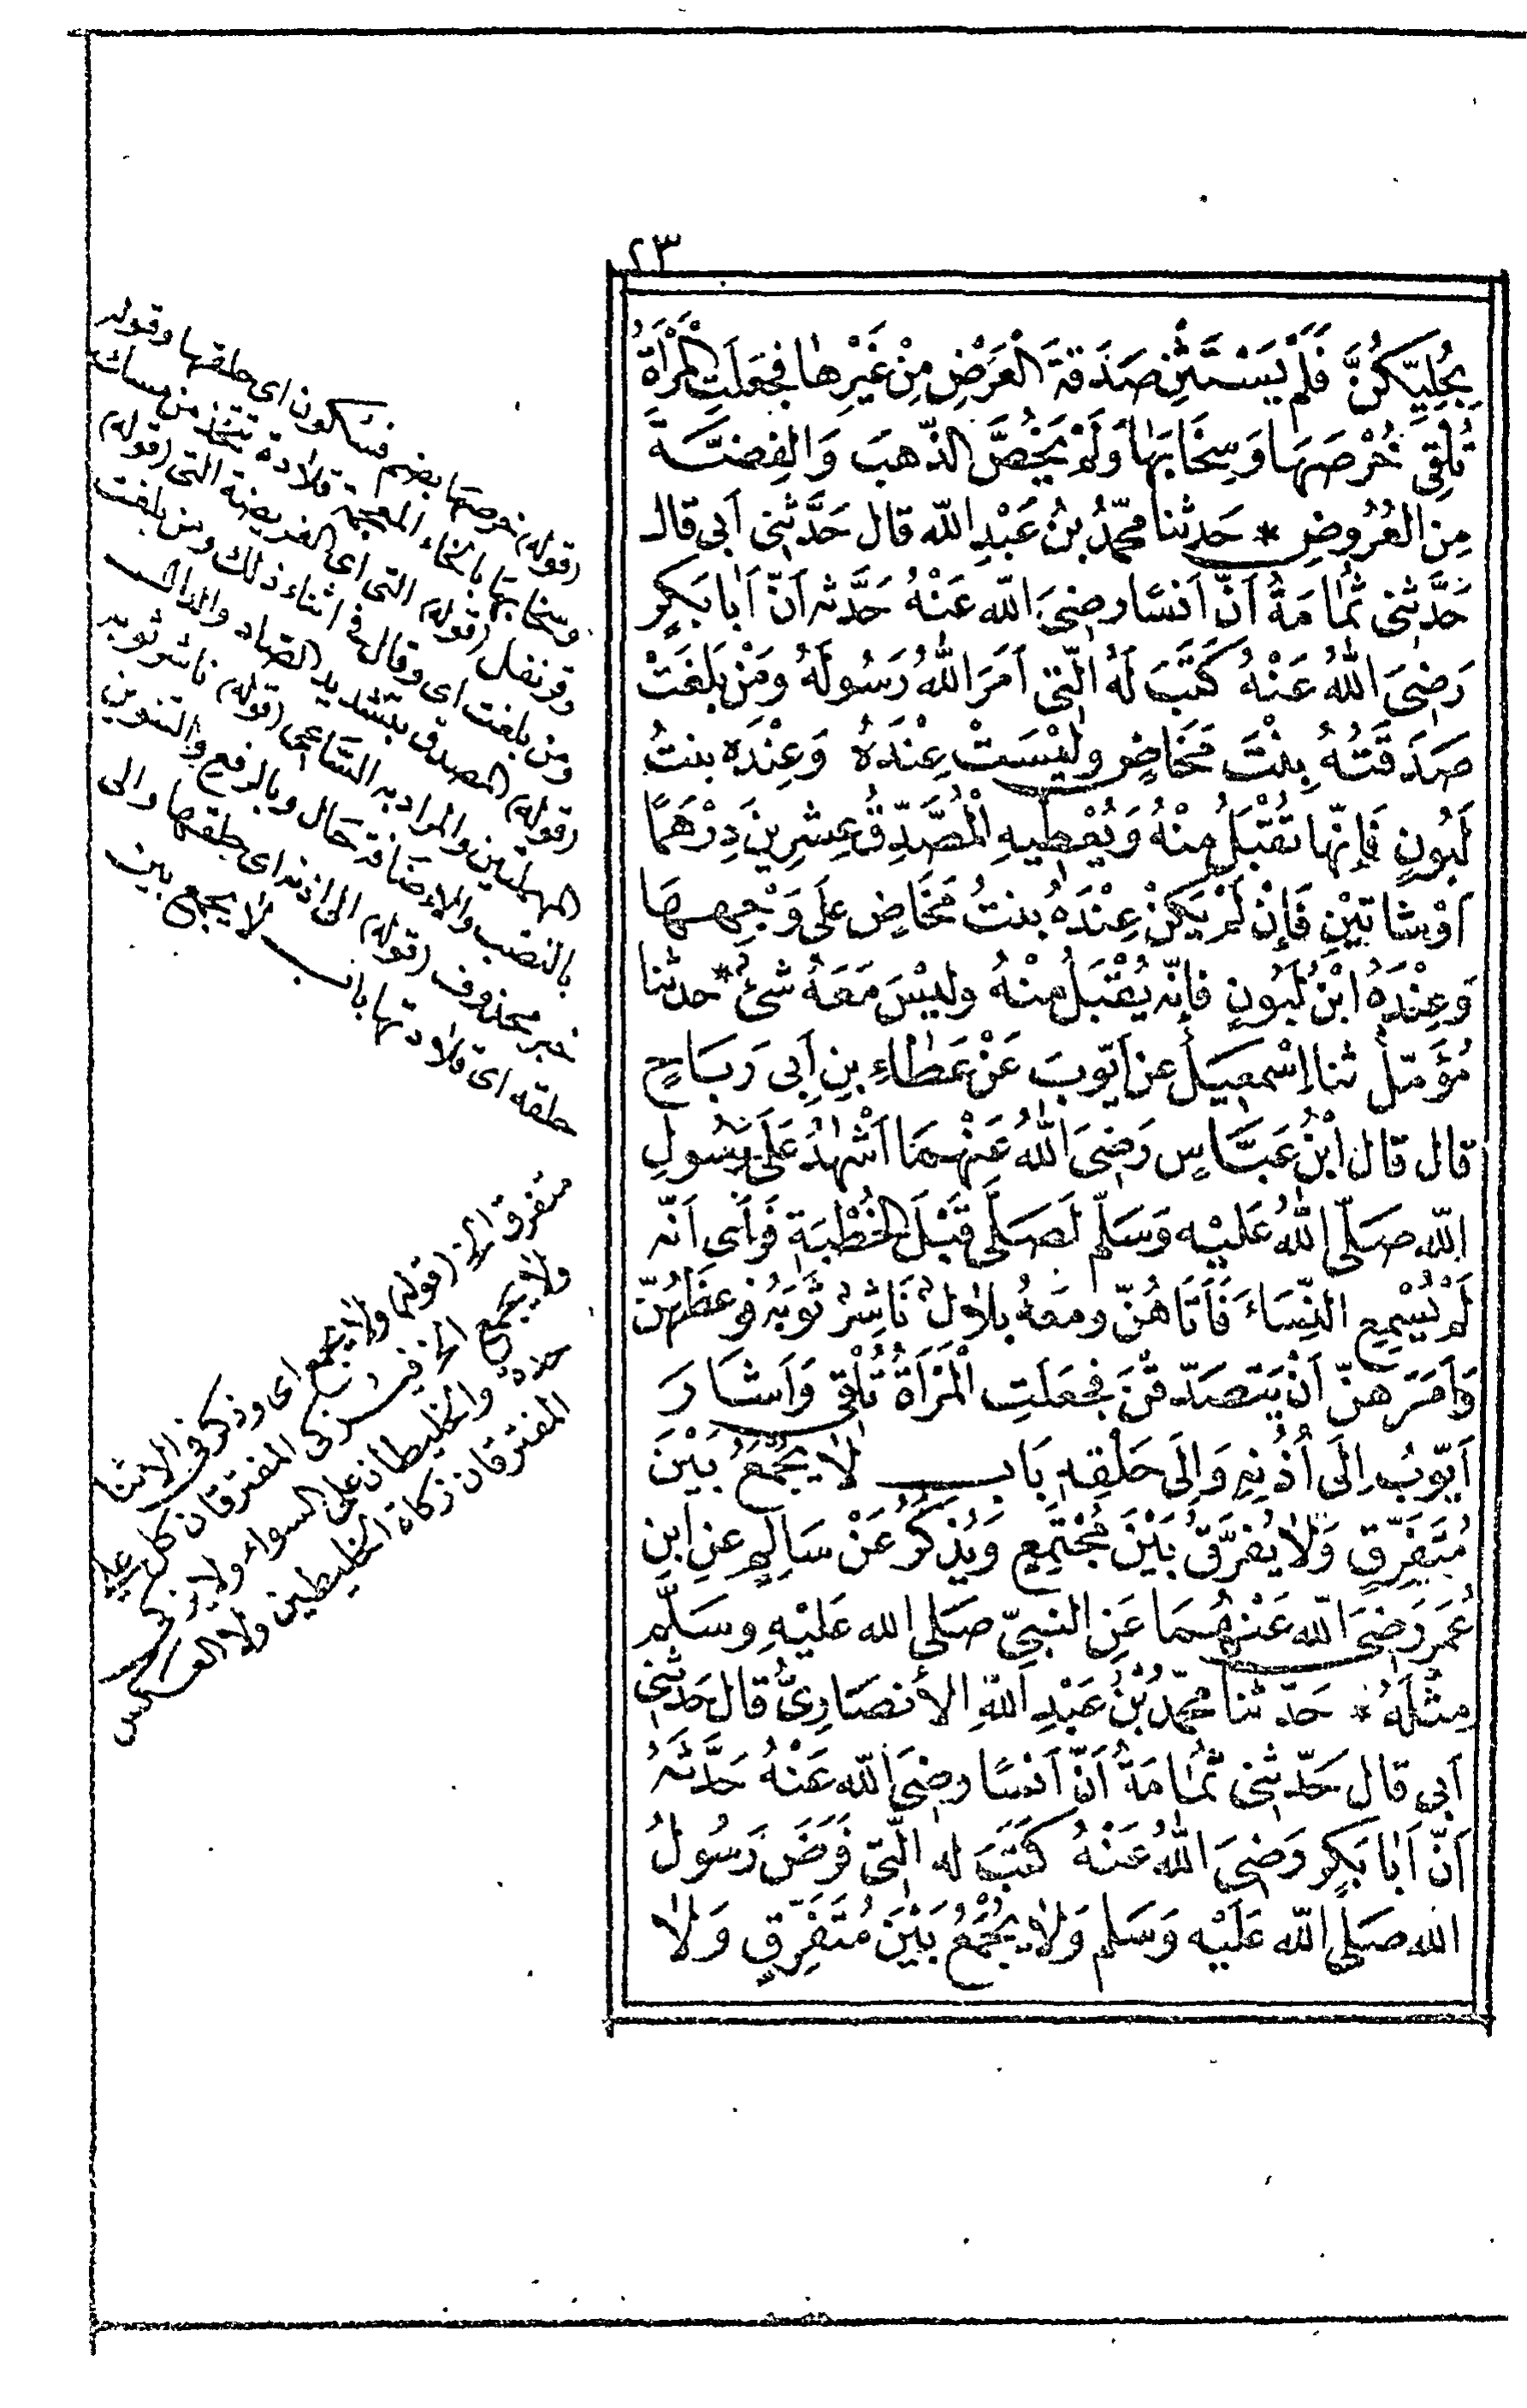 ٢٣
بِحُلِيِّكُنَّ فَلَمْ يَسْتَثْنِ صَدَقَةَ الْعَرَضِ مِنْ غَيْرِهَا فَجَعَلَتِ الْمَرْأَةُ
تُلْقِى خُرْصَهَا وَسِخَابَهَا وَلَمْ يَخُصَّ الذَّهَبَ وَالْفِضَّةَ
مِنَ الْعُرُوضِ * حَدثنا محمّدُ بنُ عَبْدِ اللّه قال حَدَّثنى أبى قال
حَدَّثنى ثُمَامَةُ أنّ أنسًا رضِىَ اللّه عَنْهُ حَدَّثه أنّ أبا بَكرٍ
رَضِىَ اللّهُ عَنْهُ كَتَبَ لَهُ الّتِى أمَرَ اللّهُ رَسُولَهُ وَمَنْ بَلَغَتْ
صَدَقَتُهُ بِنْتَ مَخَاضٍ وليْسَتْ عِنْدَهُ وَعِنْدَه بنتُ
لَبُونٍ فَإنّها تقْبَلُ مِنْهُ وَيُعْطِيهِ الْمُصَدِّقُ عِشرِينَ دِرْهَمًا
أوْ شاتَيْنِ فَإنْ لَمْ يَكنْ عِنْدَهُ بنتُ مَخَاضٍ عَلَى وَجْهِهَا
وَعِنْدَهُ ابْنُ لَبُونٍ فإنّه يُقْبَلُ مِنْهُ وليْسَ مَعَهُ شئٌ * حدثنا
مُؤَمّلٌ ثنا إسْمعِيلُ عن أيّوبَ عَنْ عَطاءِ بنِ أبِى رَبَاحٍ
قال قال ابْنُ عَبَّاسٍ رَضِىَ اللّهُ عَنْهمَا أشْهَدُ عَلَى رَسُولِ
اللّه صَلّى اللّهُ عَليْه وَسَلّم لَصَلَّى قَبْلَ الخُطْبَةِ فَرَأى أنّه
لَمْ يُسْمِعِ النّسَاءَ فَأتَاهُنّ ومعهُ بلالٌ نَاشِرُ ثَوْبِهِ فوَعظَهُنّ
وَأمَرَهنّ أنْ يَتصَدّقْنَ فجعَلتِ الْمَرْأةُ تُلْقِى وَأشَارَ
أيّوبُ إلَى أُذُنِهِ وَإلَى حَلْقِهِ بَاب لا يُجْمَعُ بَيْنَ
مُتَفَرّقٍ وَلا يُفَرَّقُ بَيْنَ مُجْتَمِعٍ وَيُذكَرُ عَنْ سَالِمٍ عنِ ابنِ
عُمَرَ رَضِىَ اللّه عَنْهُمَا عَنِ النبىّ صَلى الله عَليْهِ وسَلّم
مِثْلَهُ * حَدّثنا محمّدُ بْنُ عَبْدِ اللّهِ الأنصَارِىُّ قال حَدثنى
أبى قال حَدّثنى ثُمَامَةُ أنّ أنسًا رضِىَ اللّه عَنْهُ حَدَّثَهُ
أنّ أبا بَكرٍ رَضِىَ اللّهُ عَنْهُ كَتَبَ له الّتى فَرَضَ رَسُولُ
الله صَلى اللّه عَلَيْه وَسَلم وَلا يُجْمَعُ بَيْنَ مُتَفَرِّقٍ وَلا
(قوله) خرصها بضم فسكون اى حلقتها وقوله
وسخابها بالخاء المعجمة قلادة تتخذ من مسك
وقرنفل (قوله) التى اى الفريضة التى (قوله)
ومن بلغت اى وقال فى اثناء ذلك ومن بلغت
(قوله) المصدق بتشديد الصاد والدال
المهملتين والمراد به السَّاعى (قوله) ناشر ثوبه
بالنصب والاضافة حال وبالرفع والتنوين
خبر محذوف (قوله) الى اذنه اى حلقها والى
حلقه اى قلادتها باب لا يجمع بين
متفرق الخ (قوله) ولا يجمع اى وذكر فى الاثنا
ولا يجمع الخ المفترقان كل على
حدة والخليطان على السواء ولا يزكى
المفترقان زكاة الخليطين ولا العكس